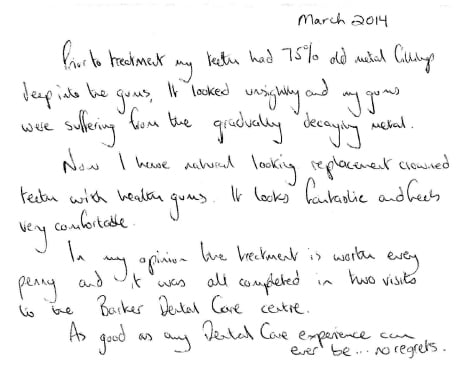 March 2014
Prior to treatment my teeth had 75% old metal fillings
deep into the gums, It looked unsightly and my gums
were suffering from the gradually decaying metal.
Now I have natural looking replacement crowned
teeth with health gums. It looks fantastic and feels
very comfortable.
In my opinion the treatment is worth every
penny and it was all completed in two visits
to the Barker Dental Care centre.
As good as any Dental Care experience can
ever be... no regrets.